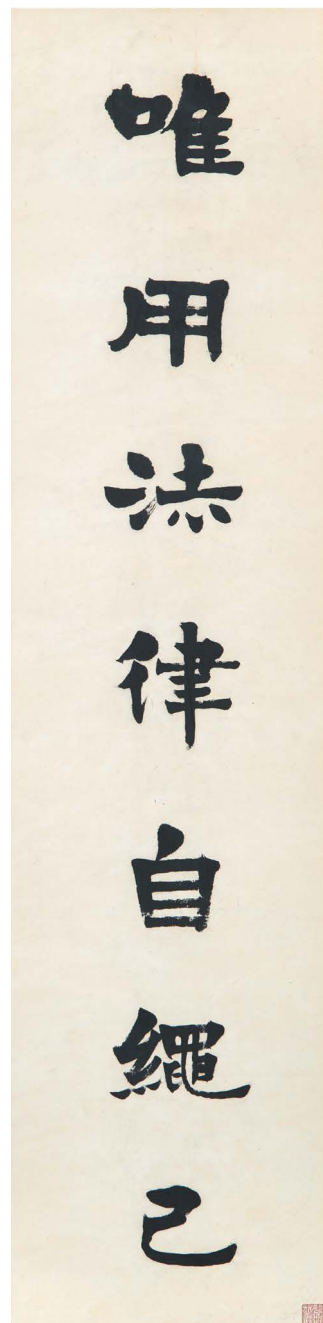 唯用法律自繩己